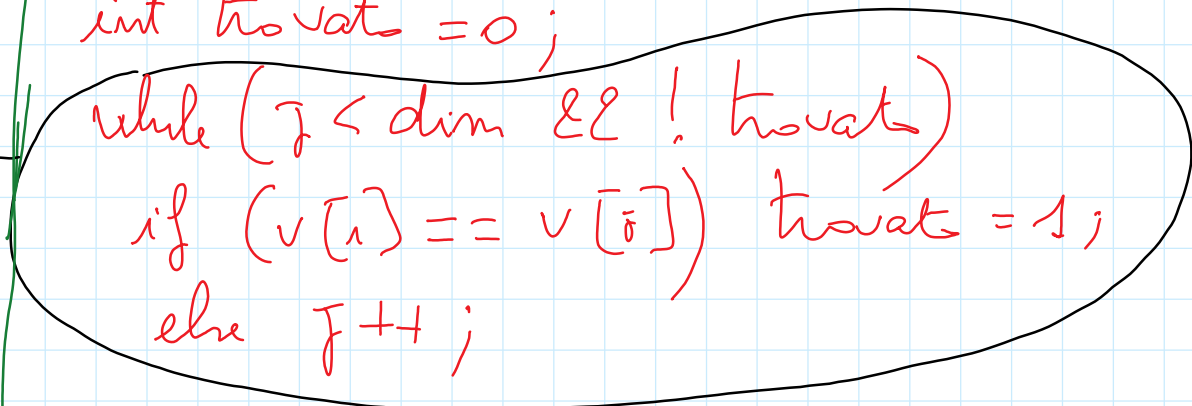 int trovato = 0;
while (j < dim && ! trovato)
if (v[i] == v[j]) trovato = 1;
else j++;